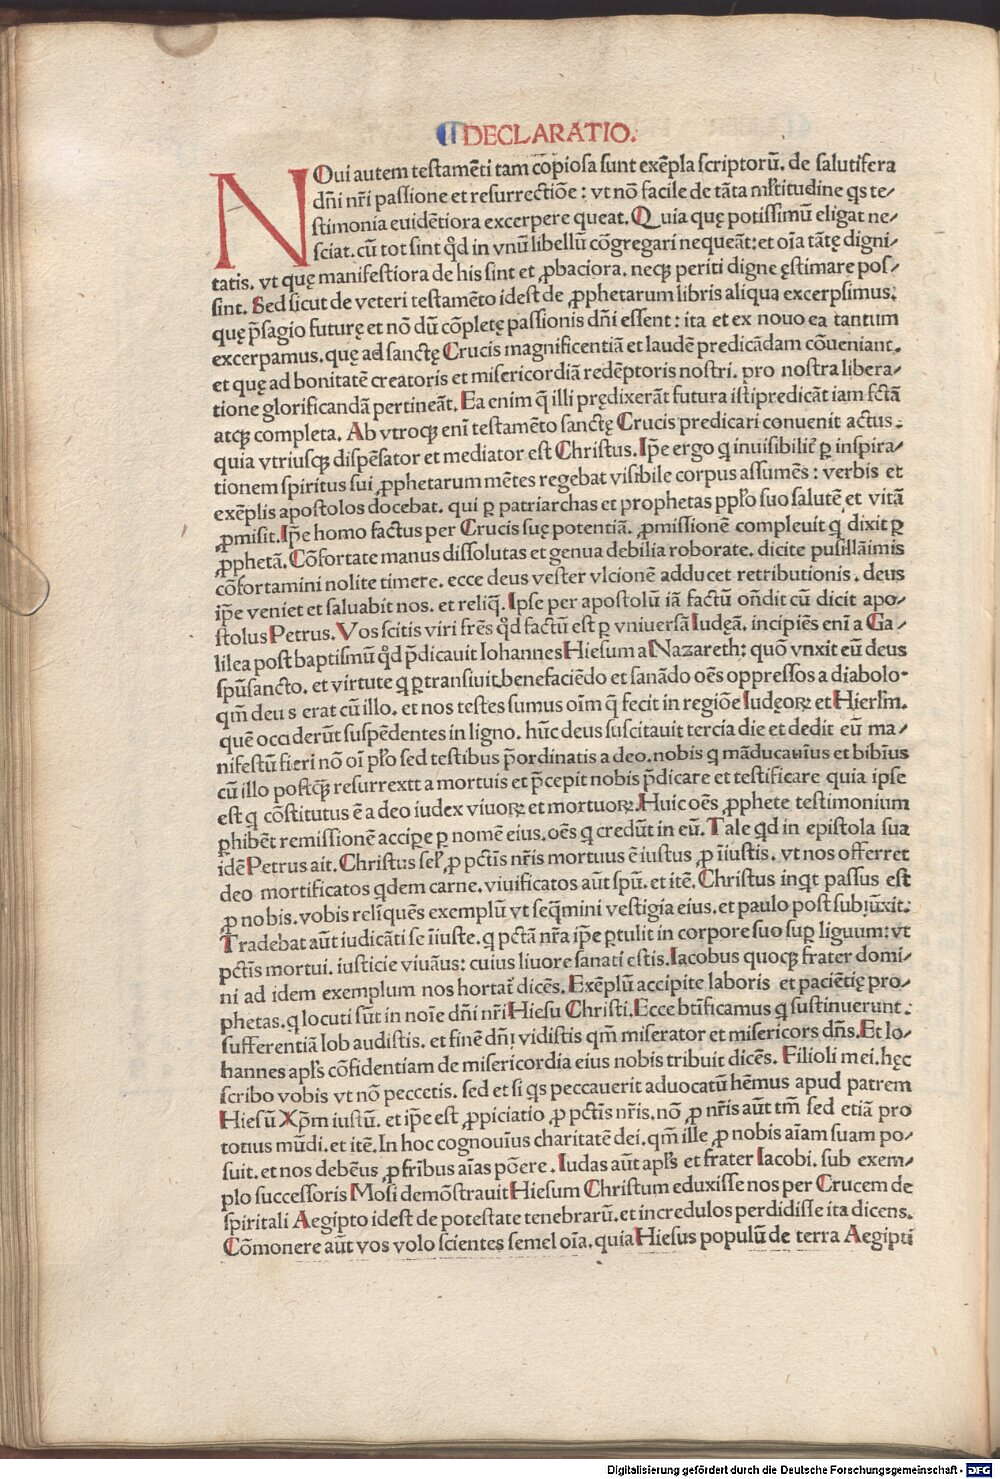 DECLARATIO.
NOui autem testamẽti tam cõpiosa sunt exẽpla scriptorũ. de salutifera
dñi nr̃i passione et resurrectiõe: vt nõ facile de tãta ml̃titudine qs te⸗
stimonia euidẽtiora excerpere queat. Quia quę potissimũ eligat ne⸗
sciat. cũ tot sint qd̃ in vnũ libellũ cõgregari nequeãt: et oĩa tãtę digni⸗
tatis. vt quę manifestiora de his sint et ꝓbaciora. neqꝫ periti digne ęstimare pos⸗
sint. Sed sicut de veteri testamẽto idest de ꝓphetarum libris aliqua excerpsimus.
quę p̃sagio futurę et nõ dũ cõpletę passionis dñi essent: ita et ex nouo ea tantum
excerpamus. quę ad sanctę Crucis magnificentiã et laudẽ predicãdam cõueniant.
et quę ad bonitatẽ creatoris et misericordiã redẽptoris nostri. pro nostra libera⸗
tione glorificandã pertineãt. Ea enim q̃ illi prędixerãt futura isti predicãt iam fctã
atqꝫ completa. Ab vtroqꝫ enĩ testamẽto sanctę Crucis predicari conuenit actus.
quia vtriusqꝫ dispẽsator et mediator est Christus. Ip̃e ergo q inuisibilit̃ ꝑ inspira⸗
tionem spiritus sui ꝓphetarum mẽtes regebat visibile corpus assumẽs: verbis et
exẽplis apostolos docebat. qui ꝑ patriarchas et prophetas ppl̃o suo salutẽ et vitã
ꝓmisit. Ip̃e homo factus per Crucis suę potentiã. ꝓmissionẽ compleuit q̃ dixit ꝑ
ꝓphetã. Cõfortate manus dissolutas et genua debilia roborate. dicite pusillãimis
cõfortamini nolite timere. ecce deus vester vlcionẽ adducet retributionis. deus
ip̃e veniet et saluabit nos. et reliq̃. Ipse per apostolũ iã factũ oñdit cũ dicit apo⸗
stolus Petrus. Vos scitis viri frẽs qd̃ factũ est ꝑ vniuersã Iudęã. incipiẽs enĩ a Ga⸗
lilea post baptismũ qd̃ p̃dicauit Iohannes Hiesum a Nazareth: quõ vnxit eũ deus
spũsancto. et virtute q ꝑtransiuit benefaciẽdo et sanãdo oẽs oppressos a diabolo.
qm̃ deus erat cũ illo. et nos testes sumus oĩm q̃ fecit in regiõe Iudęoꝝ et Hierl̃m.
quẽ occiderũt suspẽdentes in ligno. hũc deus suscitauit tercia die et dedit eũ ma⸗
nifestũ fieri nõ oĩ pl̃o sed testibus p̃ordinatis a deo. nobis q mãducauĩus et bibĩus
cũ illo postqꝫ̃ resurrextt a mortuis et p̃cepit nobis p̃dicare et testificare quia ipse
est q cõstitutus ẽ a deo iudex viuoꝝ et mortuoꝝ. Huic oẽs ꝓphete testimonium
ꝑhibẽt remissionẽ acciꝑe ꝑ nomẽ eius. oẽs q credũt in eũ. Tale qd̃ in epistola sua
idẽ Petrus ait. Christus sel̃ ꝓ pctĩs nr̃is mortuus ẽ iustus ꝓ ĩiustis. vt nos offerret
deo mortificatos qdem carne. viuificatos aũt spũ. et itẽ. Christus inqt passus est
ꝓ nobis. vobis reliq̃uẽs exemplũ vt seq̃mini vestigia eius. et paulo post subiũxit.
Tradebat aũt iudicãti se ĩiuste. q pctã nr̃a ip̃e ꝑtulit in corpore suo suꝑ liguum: vt
pctĩs mortui. iusticie viuãus: cuius liuore sanati estis. Iacobus quoqꝫ frater domi⸗
ni ad idem exemplum nos hortat̃ dicẽs. Exẽplũ accipite laboris et paciẽtię pro⸗
phetas. q locuti sũt in noĩe dñi nr̃i Hiesu Christi. Ecce bt̃ificamus q sustinuerunt.
sufferentiã Iob audistis. et finẽ dñi vidistis qm̃ miserator et misericors dñs. Et Io⸗
hannes apl̃s cõfidentiam de misericordia eius nobis tribuit dicẽs. Filioli mei. hęc
scribo vobis vt nõ peccetis. sed et si qs peccauerit aduocatũ hẽmus apud patrem
Hiesũ Xp̃m iustũ. et ip̃e est ꝓpiciatio ꝓ pctĩs nr̃is. nõ ꝓ nr̃is aũt tm̃ sed etiã pro
totius mũdi. et itẽ. In hoc cognouĩus charitatẽ dei. qm̃ ille ꝓ nobis aĩam suam po⸗
suit. et nos debẽus ꝓ fr̃ibus aĩas põere. Iudas aũt apl̃s et frater Iacobi. sub exem⸗
plo successoris Mosi demõstrauit Hiesum Christum eduxisse nos per Crucem de
spiritali Aegipto idest de potestate tenebrarũ. et incredulos perdidisse ita dicens.
Cõmonere aũt vos volo scientes semel oĩa. quia Hiesus populũ de terra Aegipti
Digitalisierung gefördert durch die Deutsche Forschungsgemeinschaft - DFG